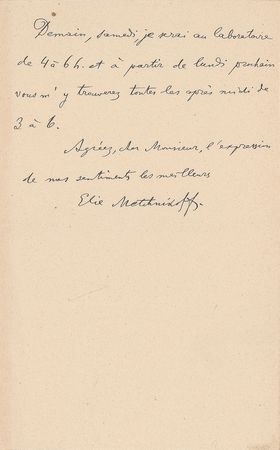 Demain, samedi je serai au laboratoire
de 4 à 6 h. et à partir de lundi prochain
vous m'y trouverez toutes les après midi de
3 à 6.
Agréez, cher Monsieur, l'expression
de nos sentiments les meilleurs
Elie Metchnikoff.